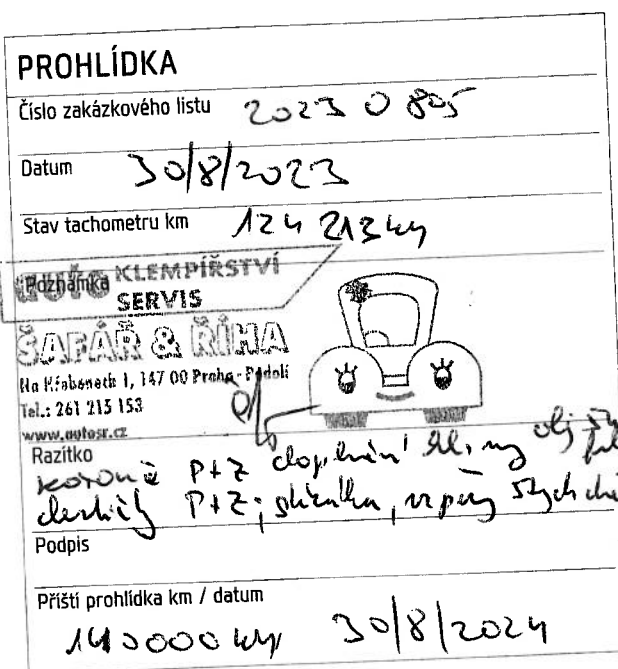 PROHLÍDKA
Číslo zakázkového listu 2023 0 805
Datum 30/8/2023
Stav tachometru km 124 213 km
Poznámka
AUTO KLEMPÍŘSTVÍ
SERVIS
ŠAFÁŘ & ŘÍHA
Na Hřebenech 1, 147 00 Praha - Podolí
Tel.: 261 215 153
www.autosr.cz
Razítko
P+Z doplnění olej
P+Z;
Podpis
Příští prohlídka km / datum
140000 km 30/8/2024